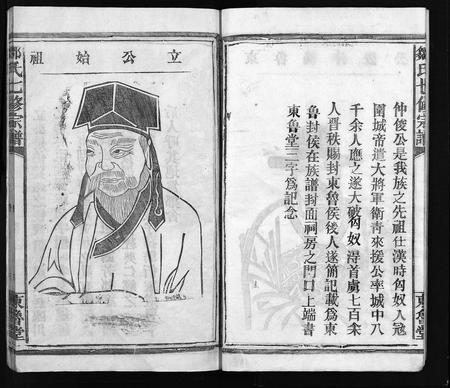 鄒氏七修宗譜
東魯堂
仲俊公是我族之先祖仕漢時匈奴人冦
圍城帝遣大將軍衛青來援公率城中八
千余人應之遂大破匈奴淂首虜七百余
人晋秩賜封東魯侯後人遂簡記載為東
魯封侯在族譜封面祠房之門口上端書
東魯堂三字為記念
祖始公立
鄒氏七修宗譜
東魯堂